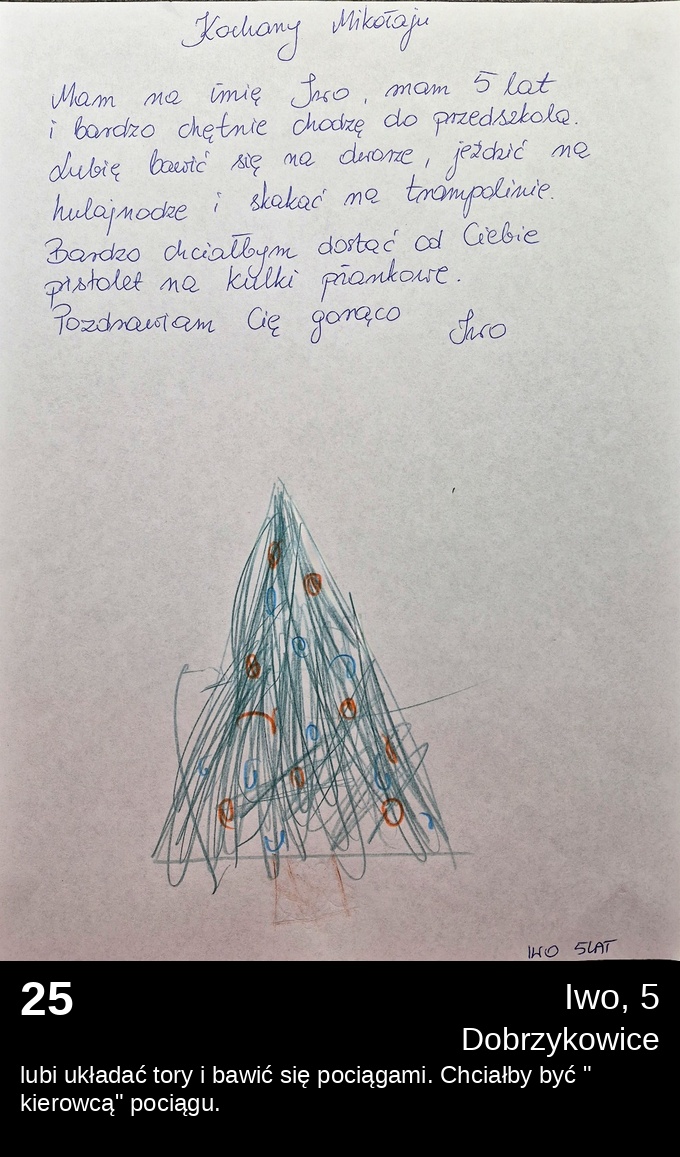 Kochany Mikołaju
Mam na imię Iwo, mam 5 lat
i bardzo chętnie chodzę do przedszkola.
Lubię bawić się na dworze, jeździć na
hulajnodze i skakać na trampolinie.
Bardzo chciałbym dostać od Ciebie
pistolet na kulki piankowe.
Pozdrawiam Cię gorąco
Iwo
IWO 5 LAT
25
Iwo, 5
Dobrzykowice
lubi układać tory i bawić się pociągami. Chciałby być "
kierowcą" pociągu.